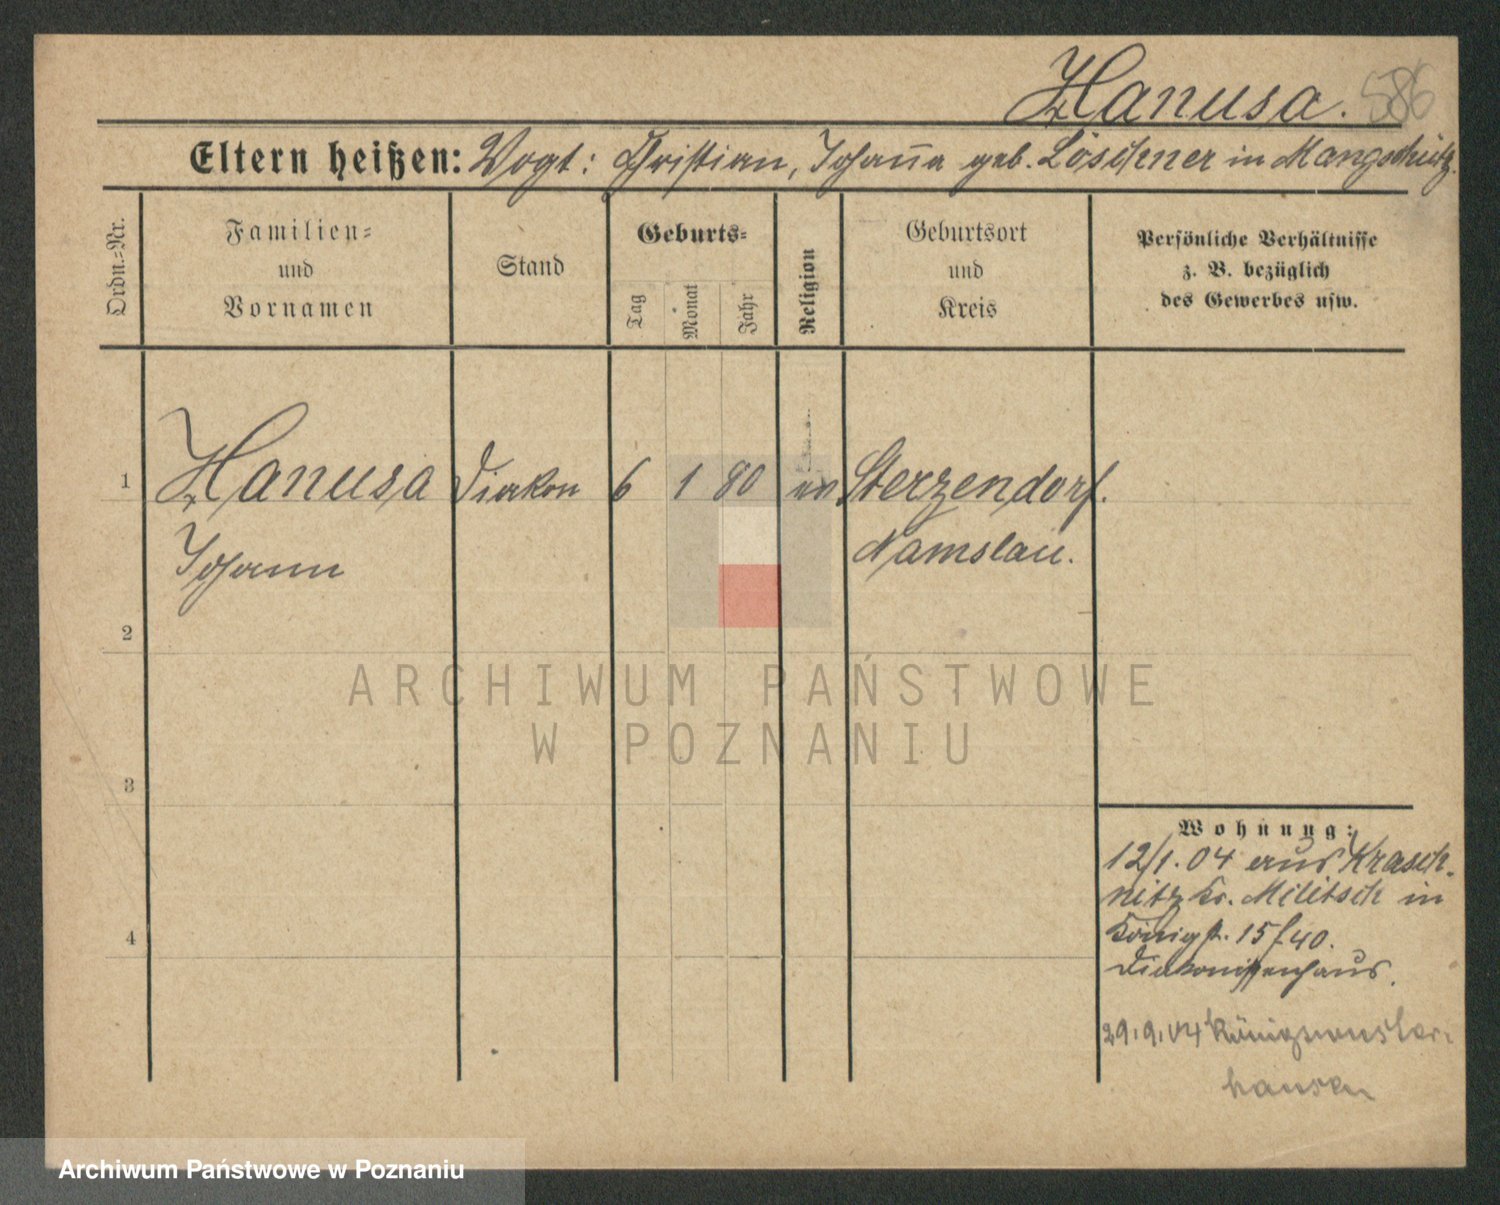 Hanusa. 586
Eltern heißen: Vogt: Christian, Johanna geb. Löschner in Mangschütz.
Ordn.-Nr.
Familien-
und
Vornamen
Stand
Geburts-
Tag
Monat
Jahr
Religion
Geburtsort
und
Kreis
Persönliche Verhältnisse
z. B. bezüglich
des Gewerbes usw.
1 Hanusa Diakon 6 1 80 ev Sterzendorf.
Johann Namslau.
2
3
4
Wohnung:
12/1. 04 aus Krasch-
nitz Kr. Militsch in
Königst. 15/40.
Diakonissenhaus.
29.9.04 Königswuster-
hausen
ARCHIWUM PAŃSTWOWE
W POZNANIU
Archiwum Państwowe w Poznaniu